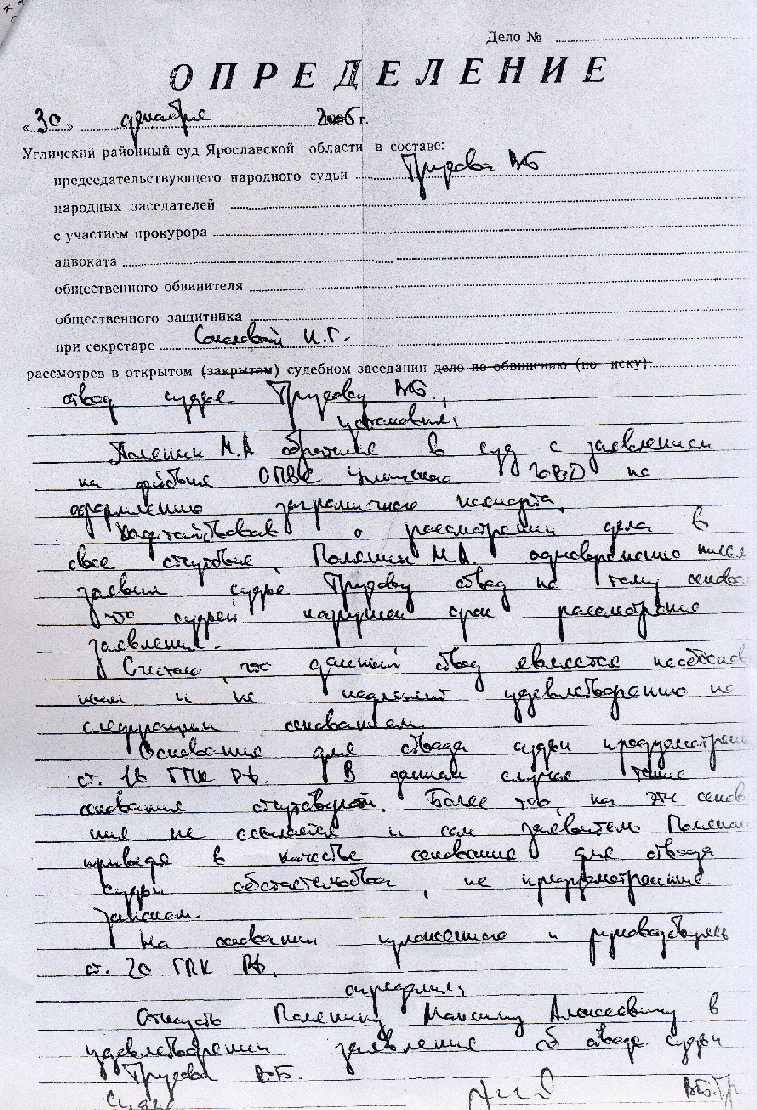 Дело №
ОПРЕДЕЛЕНИЕ
«30» декабря 2005 г.
Угличский районный суд Ярославской области в составе:
председательствующего народного судьи Трудова ВБ
народных заседателей
с участием прокурора
адвоката
общественного обвинителя
общественного защитника
при секретаре И.Г.
рассмотрев в открытом (закрытом) судебном заседании дело по обвинению (по иску)
отвод судье Трудову ВБ.,
установил:
М.А обратился в суд с заявлением
на действия ОПВС Угличского ГОВД по
оформлению заграничного паспорта.
Ходатайствовав о рассмотрении дела в
свое отсутствие М.А. одновременно
заявил судье Трудову отвод на тому
что судьей нарушен срок рассмотрения
заявления.
Считаю, что данный отвод является необоснов
ным и не подлежит удовлетворению по
следующим основаниям.
Основания для отвода судьи предусмотрены
ст. 16 ГПК РФ. В данном случае такие
основания отсутствуют. Более того, на эти основа
ния не ссылается и сам заявитель
приводя в качестве основания для отвода
судьи обстоятельства, не предусмотренные
законом.
На основании изложенного и руководствуясь
ст. 20 ГПК РФ,
определил:
Отказать Максиму Алексеевичу в
удовлетворении заявления об отводе судьи
Трудова В.Б.
Судья